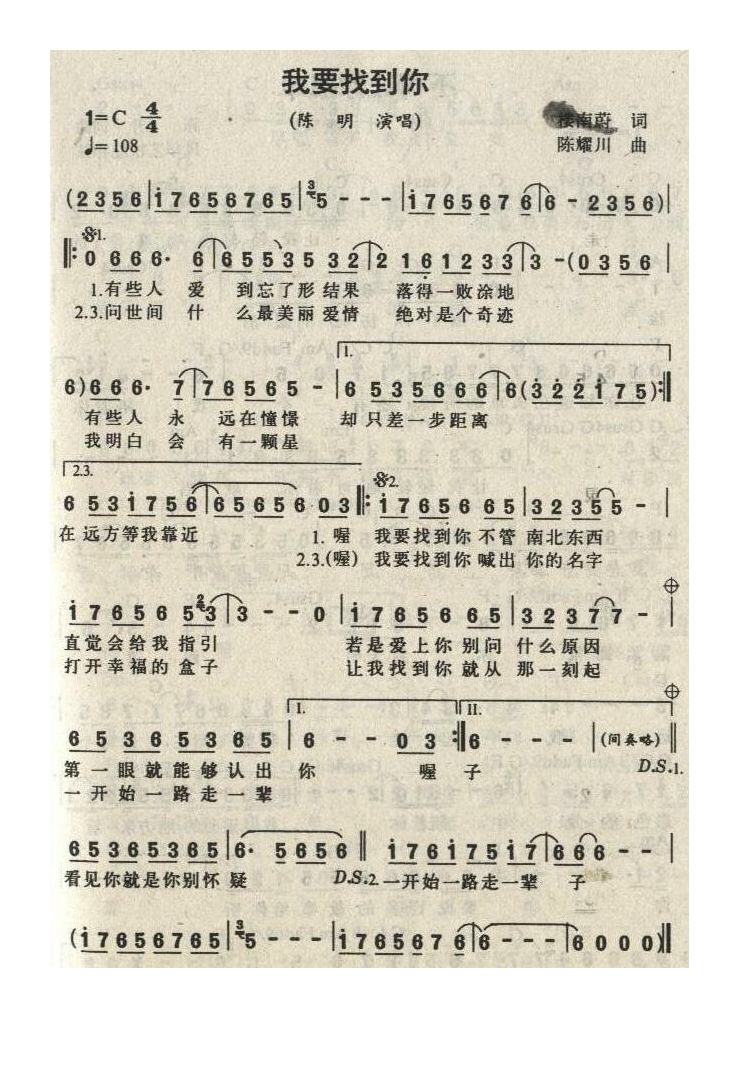 我要找到你
1=C 4/4
(陈 明 演唱)
楼南蔚 词
♩=108
陈耀川 曲
(2356|i7656765|35---|i765676|6-2356)|
1.
‖:0666·6|6553532|2161233|3-(0356|
1.有些人 爱 到忘了形结果 落得一败涂地
2.3.问世间 什 么最美丽爱情 绝对是个奇迹
1.
6)666·7|776565-|65356666(322175):‖
有些人 永 远在憧憬 却只差一步距离
我明白 会 有一颗星
2.3.
2.
6531756|65656 03‖:i7656 65|32355-|
在远方等我靠近 1.喔 我要找到你不管 南北东西
2.3.(喔) 我要找到你喊出 你的名字
i7656 523|3--0|i7656 65|32377-|
直觉会给我 指引 若是爱上你 别问 什么原因
打开幸福的 盒子 让我找到你 就从 那一刻起
I. II.
65365365|6--03:‖6---|(间奏略)‖
第一眼就能够认出 你 喔 子 D.S.1.
一开始一路走一辈
65365365|6·5656‖i76i75i7|666--|
看见你就是你别怀 疑 D.S.2. 一开始一路走一辈 子
(i7656765|35---|i765676|6---|6000)‖